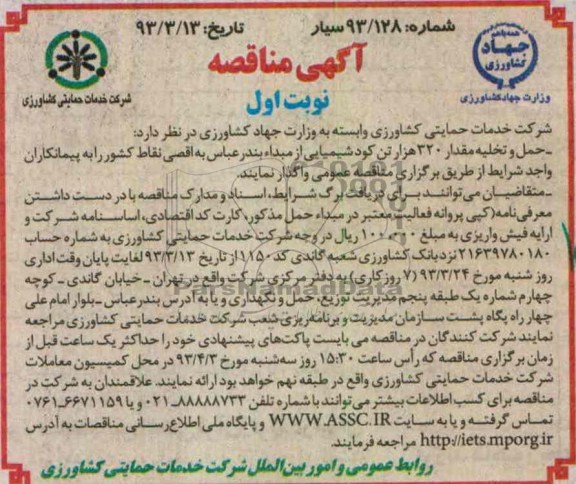 شماره: ۹۳/۱۲۸ سیار
تاریخ: ۹۳/۳/۱۳
همه با هم
جهاد
کشاورزی
وزارت جهاد کشاورزی
شرکت خدمات حمایتی کشاورزی
آگهی مناقصه
نوبت اول
شرکت خدمات حمایتی کشاورزی وابسته به وزارت جهاد کشاورزی در نظر دارد:
ـ حمل و تخلیه مقدار ۳۲۰ هزار تن کود شیمیایی از مبداء بندرعباس به اقصی نقاط کشور را به پیمانکاران
واجد شرایط از طریق برگزاری مناقصه عمومی واگذار نمایند.
ـ متقاضیان می‌توانند برای دریافت برگ شرایط، اسناد و مدارک مناقصه با در دست داشتن
معرفی‌نامه (کپی پروانه فعالیت معتبر در مبداء حمل مذکور، کارت کد اقتصادی، اساسنامه شرکت و
ارایه فیش واریزی به مبلغ ۱۰۰،۰۰۰ ریال در وجه شرکت خدمات حمایتی کشاورزی به شماره حساب
۲۱۶۳۹۷۸۰۱۸۰ نزد بانک کشاورزی شعبه گاندی کد ۱۱۵۰ از تاریخ ۹۳/۳/۱۳ لغایت پایان وقت اداری
روز شنبه مورخ ۹۳/۳/۲۴ (۷ روز کاری) به دفتر مرکزی شرکت واقع در تهران ـ خیابان گاندی ـ کوچه
چهارم شماره یک طبقه پنجم مدیریت توزیع، حمل و نگهداری و یا به آدرس بندرعباس ـ بلوار امام علی
چهار راه پگاه پشت سازمان مدیریت و برنامه‌ریزی شعب شرکت خدمات حمایتی کشاورزی مراجعه
نمایند شرکت کنندگان در مناقصه می بایست پاکت‌های پیشنهادی خود را حداکثر یک ساعت قبل از
زمان برگزاری مناقصه که رأس ساعت ۱۵:۳۰ روز سه‌شنبه مورخ ۹۳/۴/۳ در محل کمیسیون معاملات
شرکت خدمات حمایتی کشاورزی واقع در طبقه نهم خواهد بود ارائه نمایند. علاقمندان به شرکت در
مناقصه برای کسب اطلاعات بیشتر می‌توانند با شماره تلفن ۸۸۸۸۸۷۳۳-۰۲۱ و یا ۶۶۷۱۱۵۹-۰۷۶۱
تماس گرفته و یا به سایت WWW.ASSC.IR و پایگاه ملی اطلاع‌رسانی مناقصات به آدرس
http://iets.mporg.ir مراجعه فرمایند.
روابط عمومی و امور بین‌الملل شرکت خدمات حمایتی کشاورزی
ParsNamadData